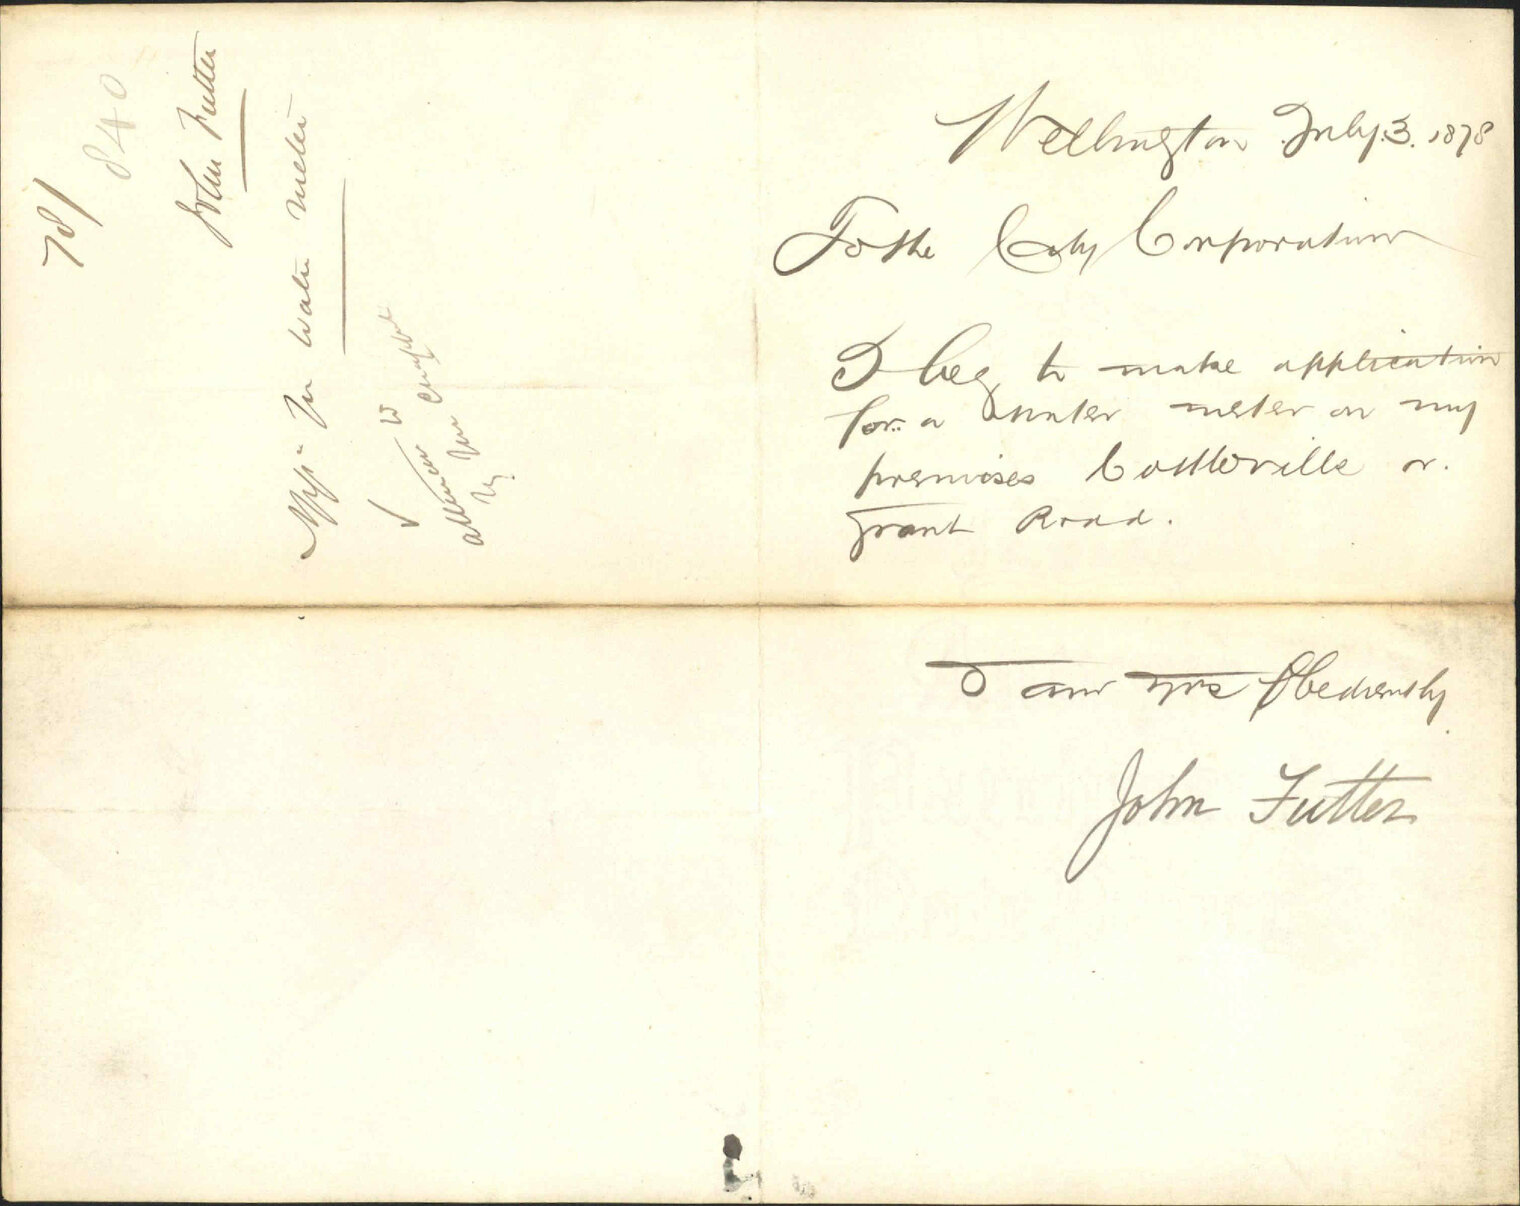 Wellington July 3. 1878
To the City Corporation
I beg to make application
for a water meter on my
premises or.
Grant Road.
I am yrs Obediently
John Futter
78/
840
John Futter
for water meter